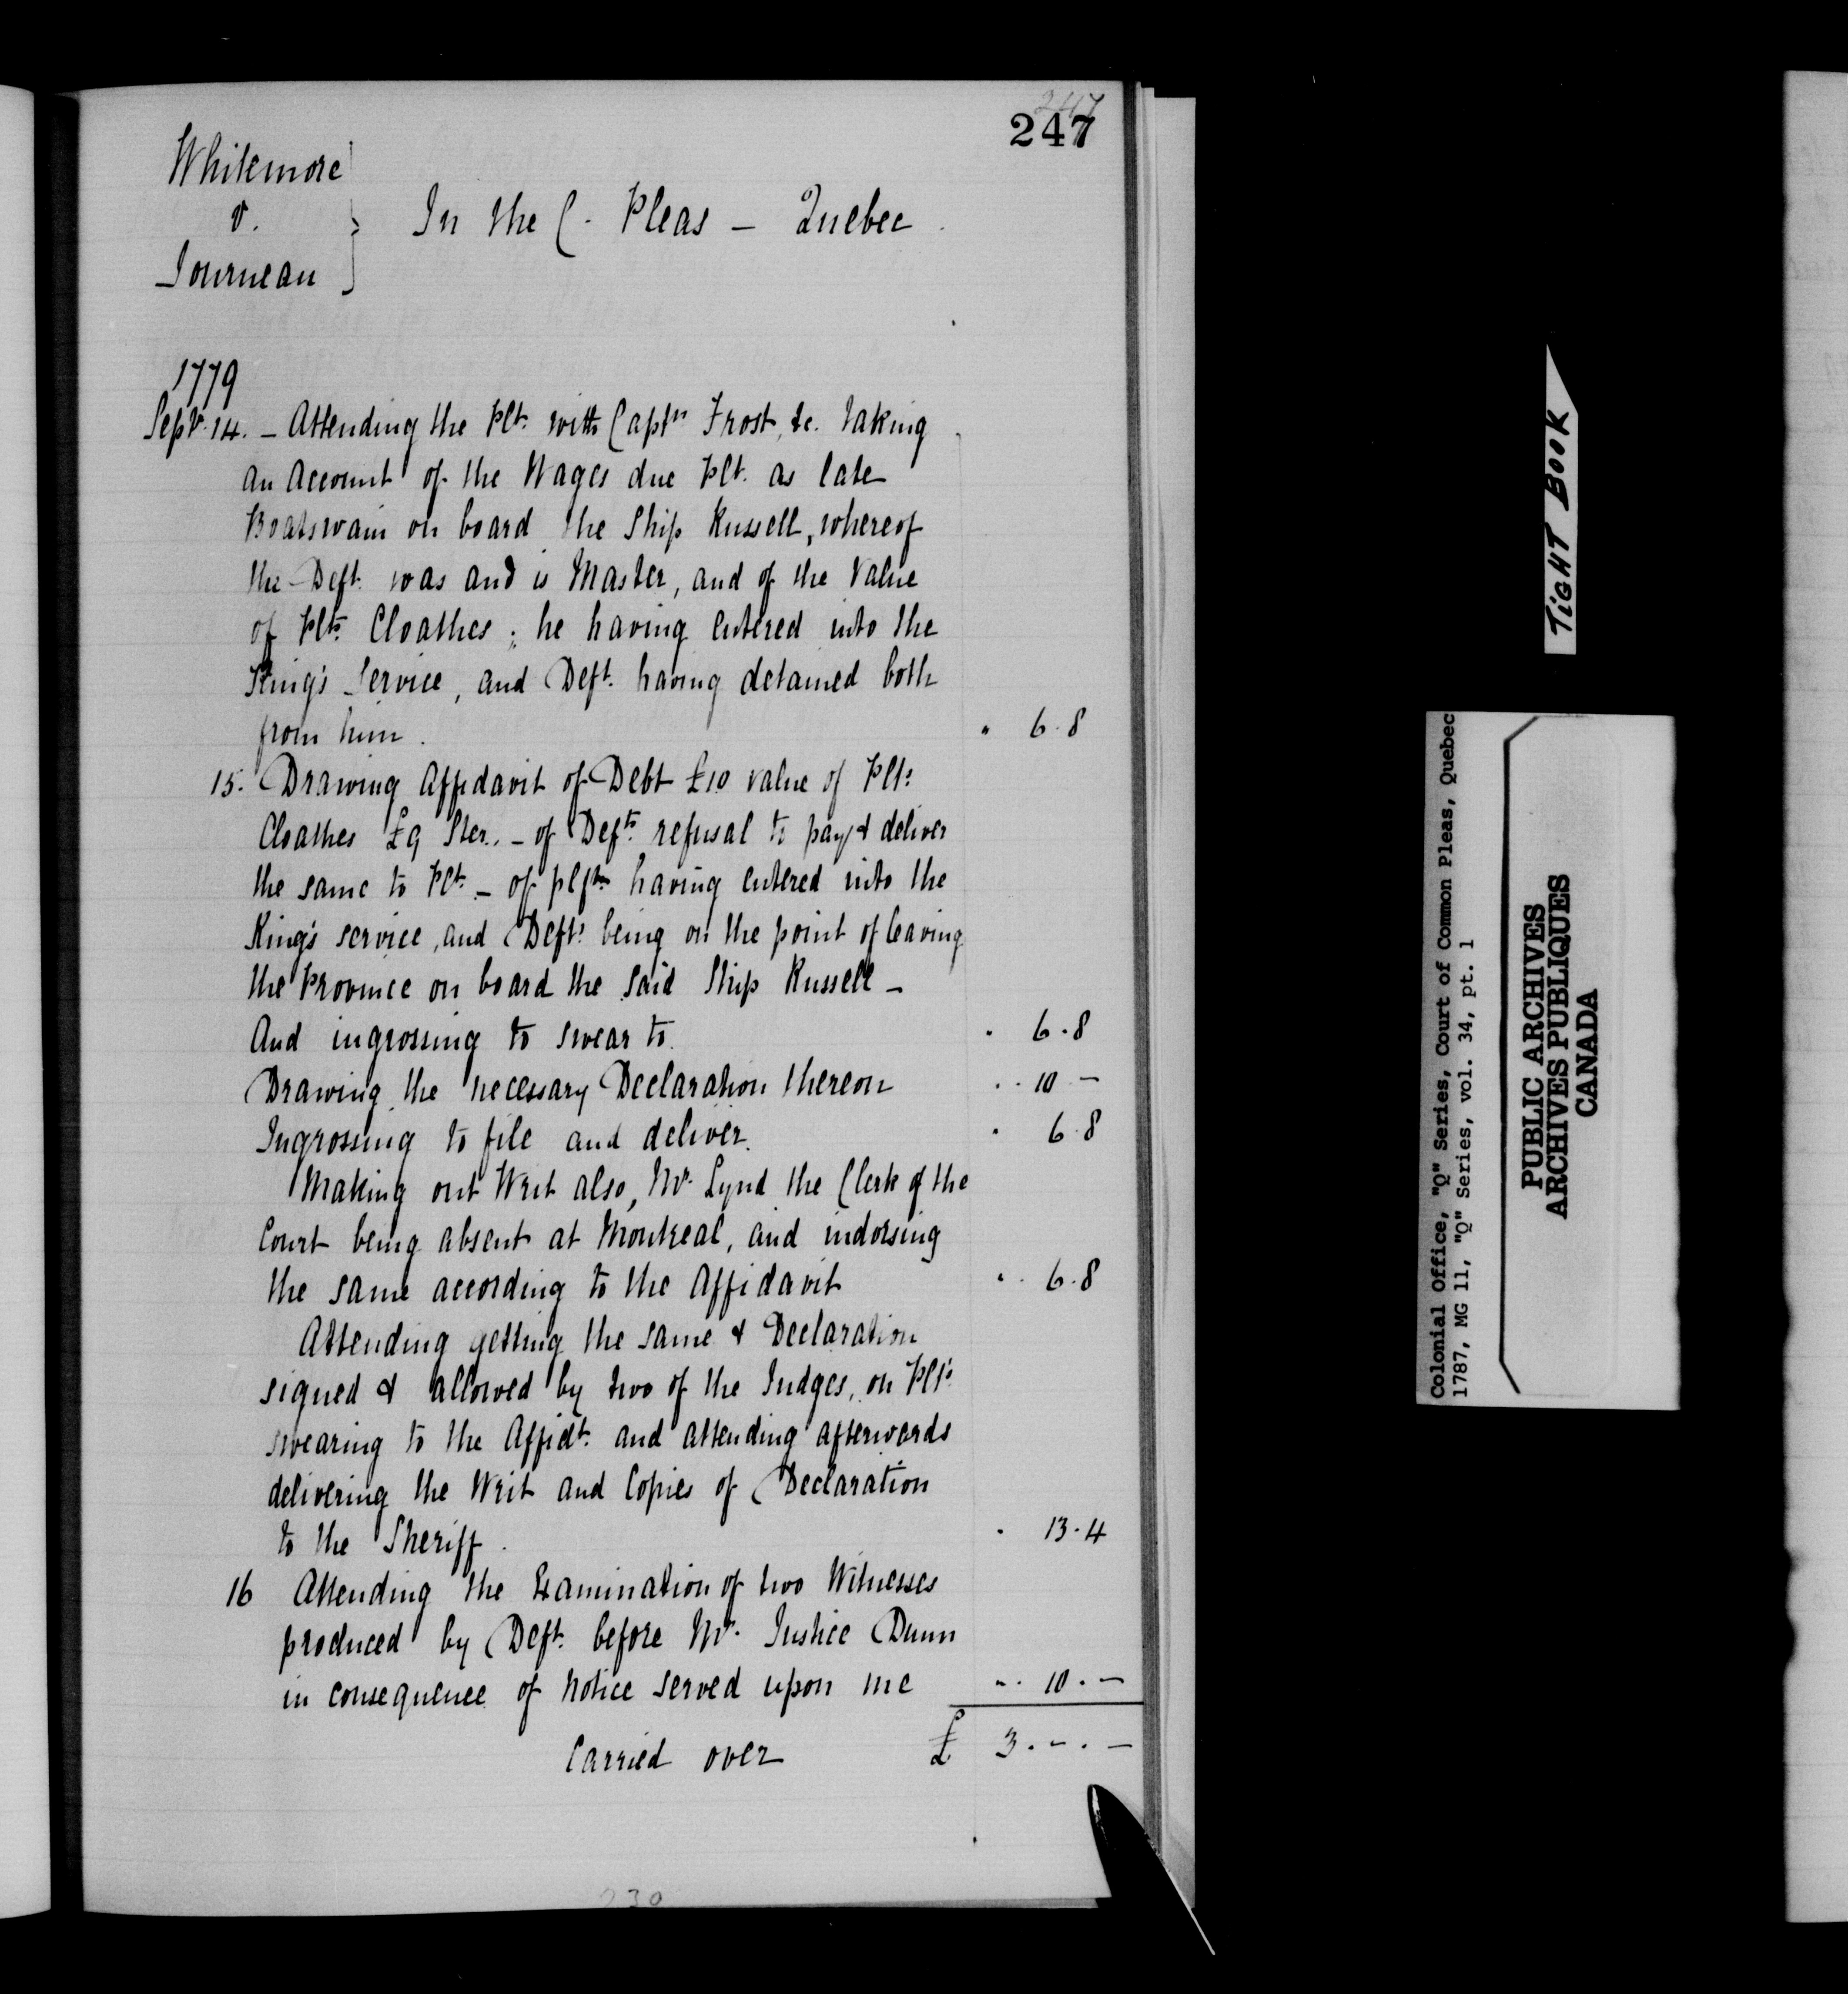 247
247
Whitemore
v.
Journeau
} In the C. Pleas – Quebec.
1779
Septr. 14. – Attending the Plt. with Captn Frost, &c. taking
an Account of the Wages due Plt. as late
Boatswain on board the Ship Russell, whereof
the Deft. was and is Master, and of the Value
of Plts. Cloathes; he having entered into the
King's Service, and Deft. having detained both
from him. " 6.8
15. Drawing Affidavit of Debt £10 value of Plts.
Cloathes £9 Ster. – of Defts. refusal to pay & deliver
the same to Plt. – of plfts. having entered into the
King's service, and Defts. being on the point of leaving
the Province on board the said Ship Russell –
And ingrossing to swear to. " 6.8
Drawing the necessary Declaration thereon " 10 –
Ingrossing to file and deliver. " 6.8
Making out Writ also, Mr. Lynd the Clerk of the
Court being absent at Montreal, and indorsing
the same according to the Affidavit " 6.8
Attending getting the same & Declaration
signed & allowed by two of the Judges, on Plt's
swearing to the Affidt. and attending afterwards
delivering the Writ and Copies of Declaration
to the Sheriff. " 13.4
16 Attending the Examination of two Witnesses
produced by Deft. before Mr. Justice Dunn
in consequence of Notice served upon me " 10. –
Carried over £ 3. – . –
230
TIGHT BOOK
Colonial Office, "Q" Series, Court of Common Pleas, Quebec
1787, MG 11, "Q" Series, vol. 34, pt. 1
PUBLIC ARCHIVES
ARCHIVES PUBLIQUES
CANADA